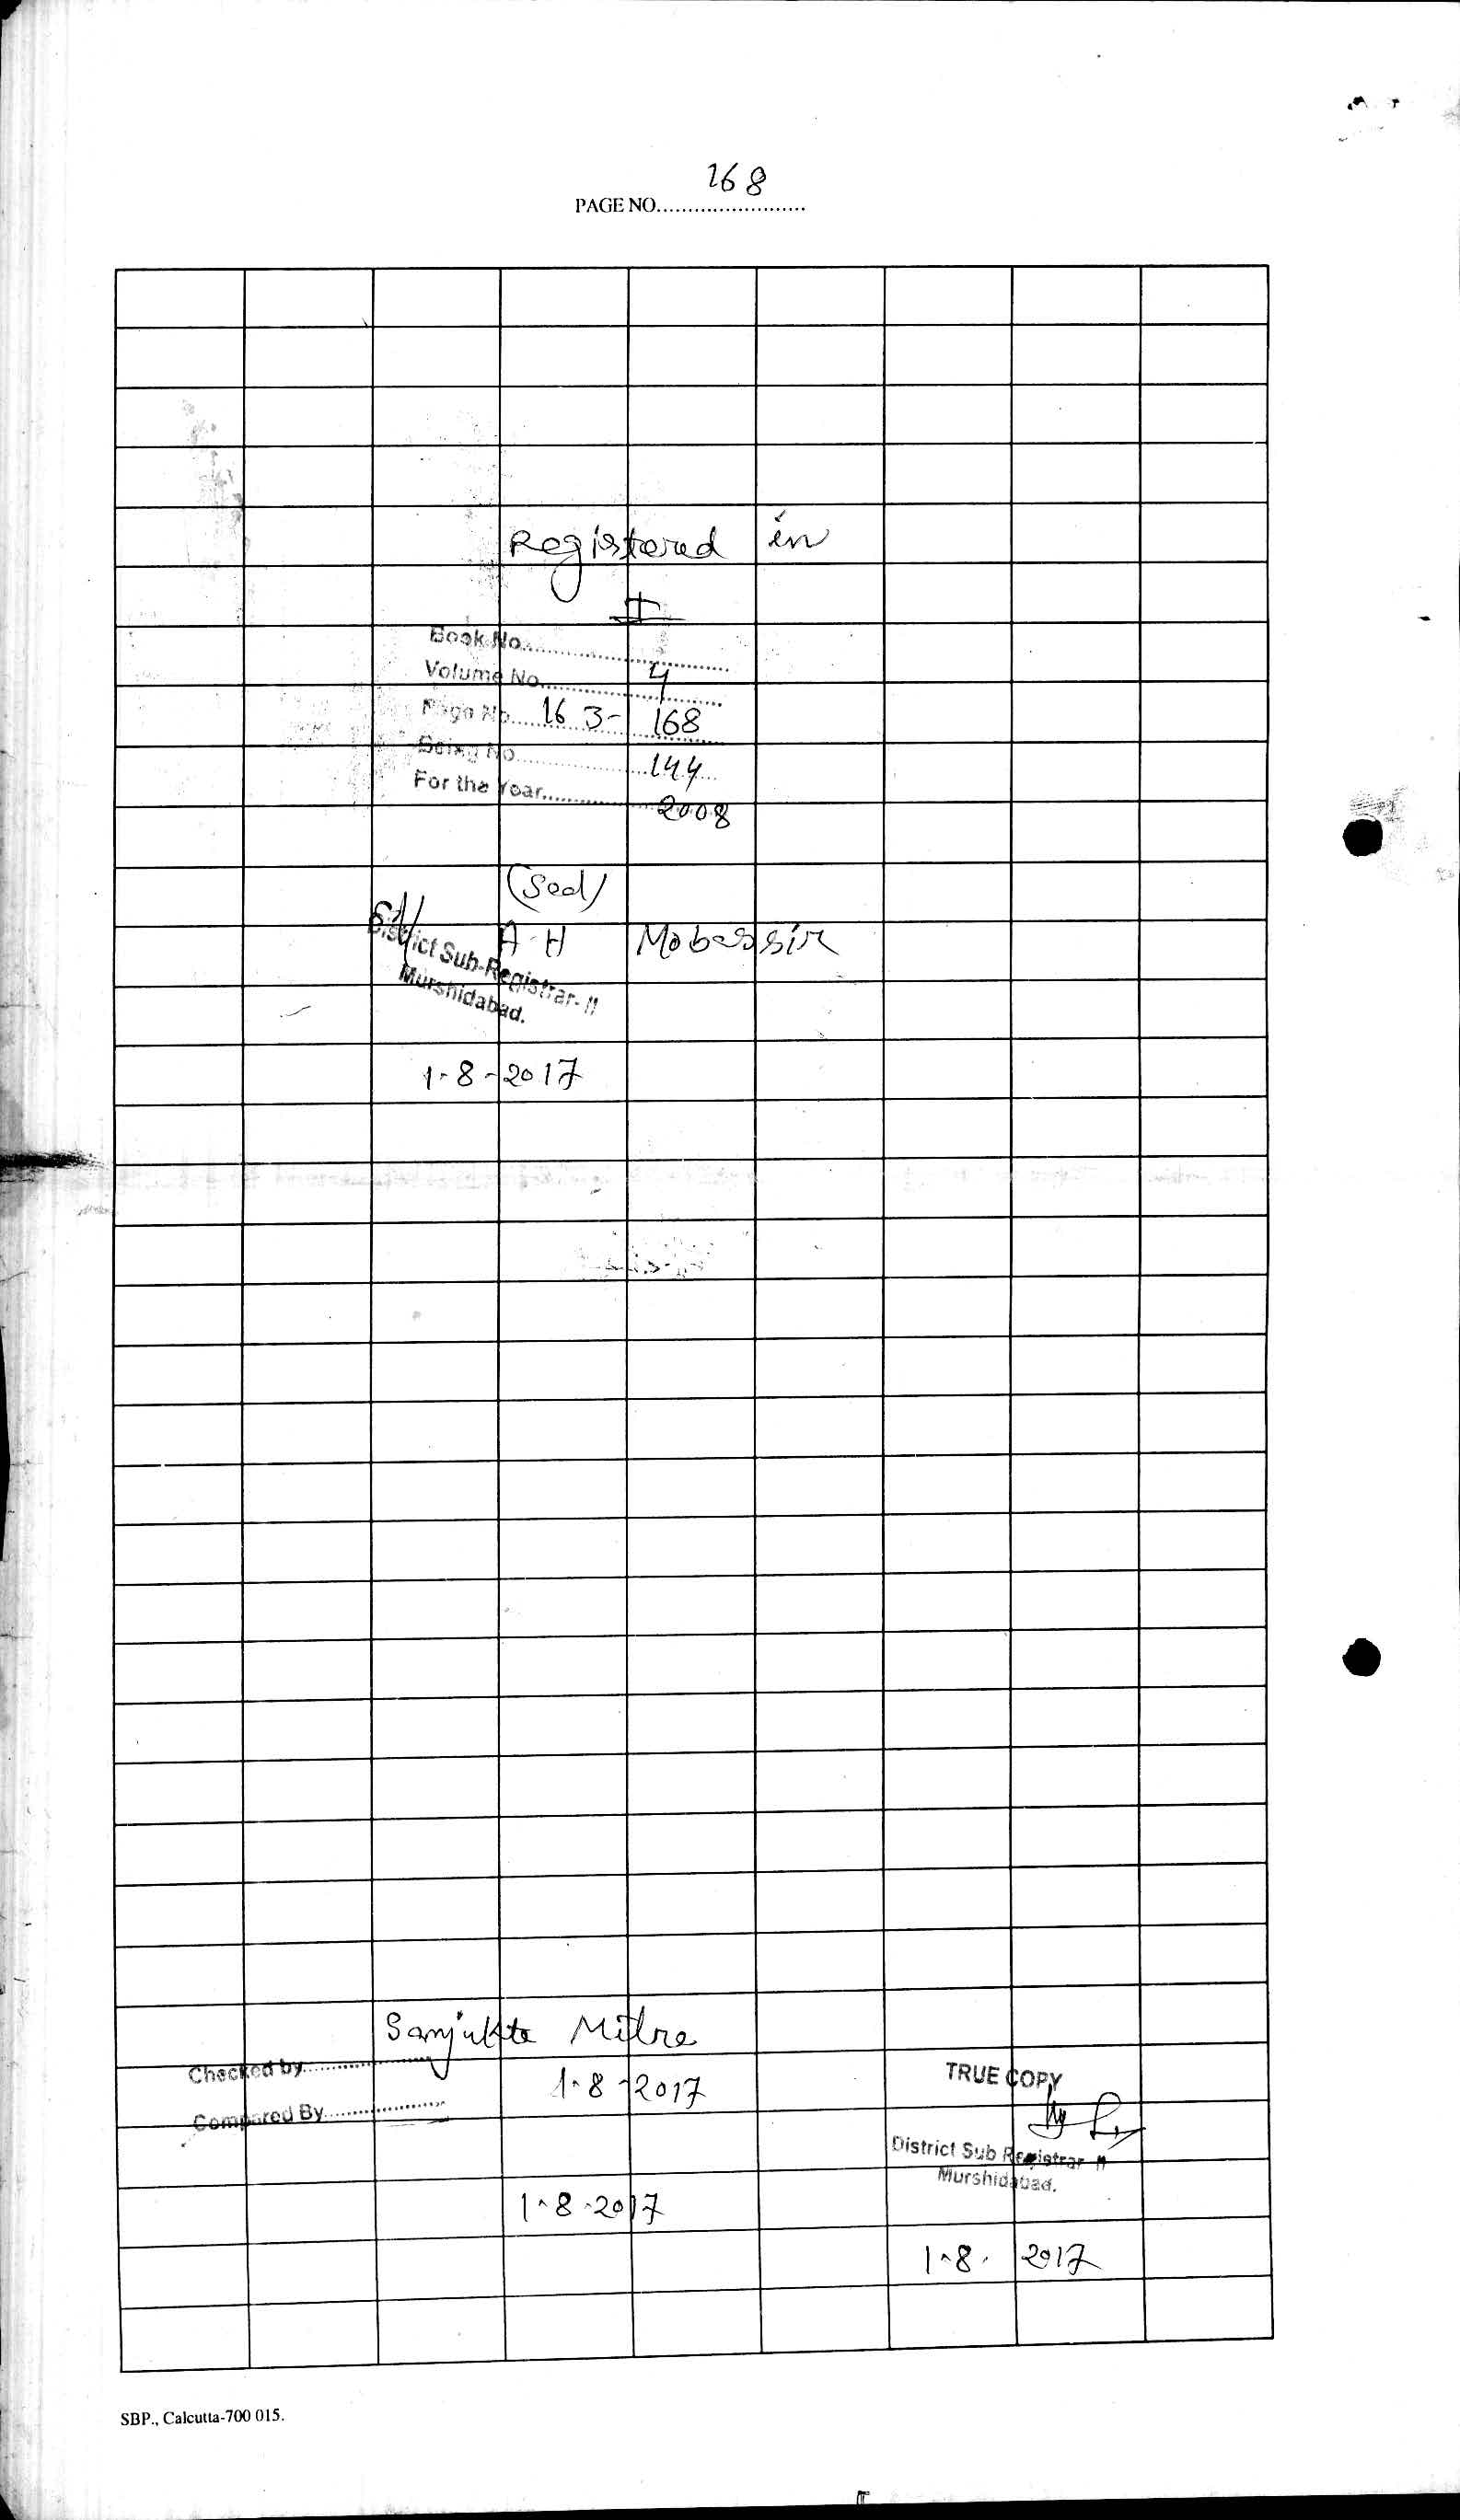 168
PAGE NO........................
Registered in
Book No. I
Volume No. 4
Page No. 163-168
Being No. 144
For the Year 2008
(Seal)
Sd/ A-H Mobassir
District Sub-Registrar-II
Murshidabad.
1-8-2017
Sanjukta Mitra
Checked by
1-8-2017
Compared By
1-8-2017
TRUE COPY
District Sub Registrar II
Murshidabad.
1-8-2017
SBP., Calcutta-700 015.